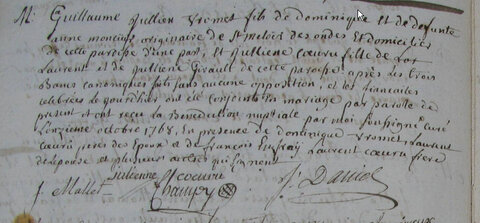 M: Guillaume Jullien Vromet fils de dominique et de defunte
anne moncius originaire de St meloir des ondes et domicilié
de cette paroisse d'une part, et jullienne cœuru fille de
Laurent et de jullienne Girault de cette paroisse après les trois
Banes canoniques faits sans aucune opposition, et les fiancailles
celebrées le ont eté conjoints en mariage par parole de
present et ont reçu la Benediction nuptiale par moi soussigné curé
L'onzieme octobre 1768, en presence de dominique Vromet Laurent
cœuru peres des Epoux et de François Laurent cœuru frere
de l'epouse et plusieurs autres qui signent
jullienne coeuru
J Mallet Champy J. Daniel